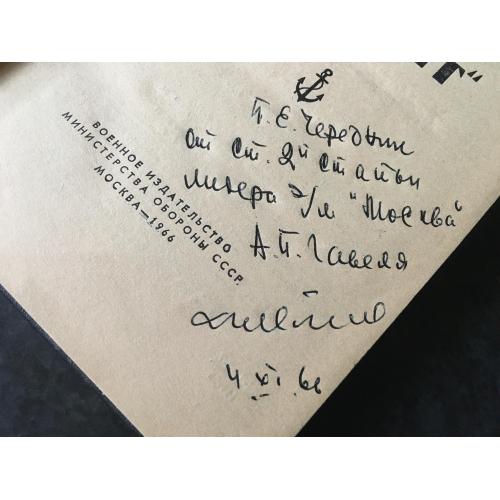 Г"
П. Е. Чередник
от ст. 2й статьи
лидера э/м "Москва"
А. П. Гавеля
4 XI 66
ВОЕННОЕ ИЗДАТЕЛЬСТВО
МИНИСТЕРСТВА ОБОРОНЫ СССР.
МОСКВА—1966